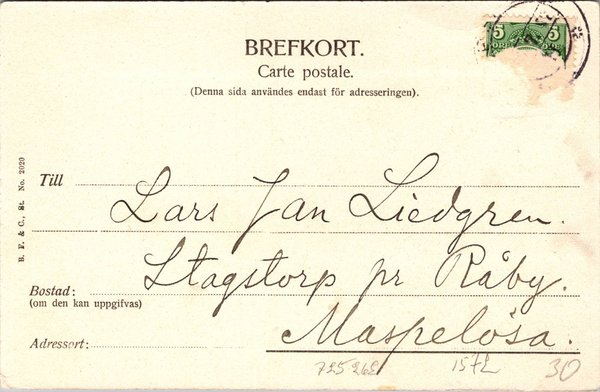 5 5
ÖRE ÖRE
BREFKORT.
Carte postale.
(Denna sida användes endast för adresseringen).
B. F. & C., St. No. 2020
Till Lars Jan Liedgren.
Bostad: Stagstorp pr Råby.
(om den kan uppgifvas)
Adressort: Maspelösa.
725262 1572 30